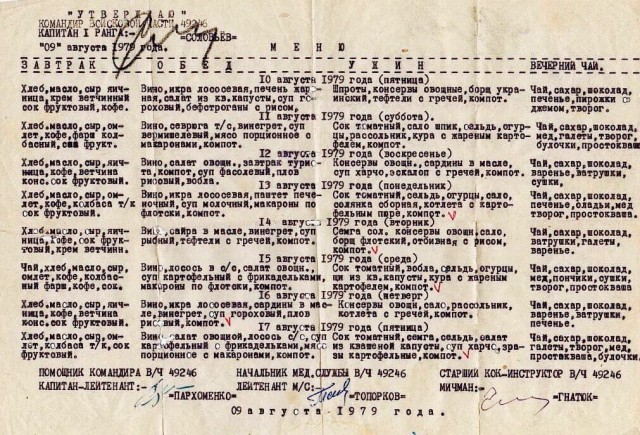 "УТВЕРЖДАЮ"
КОМАНДИР ВОЙСКОВОЙ ЧАСТИ 49246
КАПИТАН I РАНГА:- =СОЛОВЬЕВ=
"09" августа 1979 года. М Е Н Ю
ЗАВТРАК ОБЕД УЖИН ВЕЧЕРНИЙ ЧАЙ.
10 августа 1979 года (пятница)
Хлеб,масло,сыр яич- Вино,икра лососевая,печень жар- Шпроты,консервы овощные,борщ укра- Чай,сахар,шоколад,
ница,крем ветчинный ная,салат из кв.капусты,суп го- инский,тефтели с гречей,компот. печенье,пирожки с
сок фруктовый,кофе. роховый,бефстроганы с рисом. джемом,творог.
11 августа 1979 года (суббота).
Хлеб,масло,сыр,ом- Вино,севрюга т/с,винегрет,суп Сок томатный,сало шпик,сельдь,огур- Чай,сахар,шоколад,
лет,кофе,фарш кол- вермишелевый,мясо порционное с цы,рассольник,кура с жареным карто- мед,галеты,творог,
басный,сок фрукт. макаронами,компот. фелем,компот. булочки,простокваша
12 августа 1979 года (воскресенье)
Хлеб,масло,сыр,яич- Вино,салат овощн.,завтрак турис- Консервы овощн,сардины в масле, Чай,сахар,шоколад,
ница,кофе,ветчина та,компот,суп фасолевый,плов суп харчо,эскалоп с гречей,компот. варенье,ватрушки,
конс.сок фруктовый. рисовый,вобла. сушки.
13 августа 1979 года (понедельник)
Хлеб,масло,сыр,ом- Вино,икра лососевая,паштет пече- Сок томатный,сельдь,огурцы,сало, Чай,сахар,шоколад,
лет,кофе,колбаса т/к ночный,суп молочный,макароны по солянка сборная,котлета с карто- печенье,оладьи,мед
сок фруктовый. флотски,компот. фельным пюре,компот. творог,простокваша.
14 августа 1979 года (вторник)
Хлеб,масло,сыр,яич- Вино,сайра в масле,винегрет,суп Семга сол. консервы овощн,сало, Чай,сахар,шоколад,
ница,кофе,сок фрук- рыбный,тефтели с гречей,компот. борщ флотский,отбивная с рисом, ватрушки,галеты,
товый,крем ветчинн. компот. варенье.
15 августа 1979 года (среда)
Чай,хлеб,масло,сыр, Вино,лосось в с/с,салат овощн., Сок томатный,вобла,сельдь,огурцы, Чай,сахар,шоколад,
омлет,кофе,колбас- суп картофельный с фрикадельками, щи из кв.капусты,кура с жареным мед,пончики,сушки,
ный фарш,кофе,сок. макароны по флотски,компот. картофелем,компот. творог,простокваша
16 августа 1979 года (четверг)
Хлеб,масло,сыр,яич- Вино,икра лососевая,сардины в мас- Консервы овощн,сало,рассольник, Чай,сахар,шоколад,
ница,кофе,ветчина ле,винегрет,суп гороховый,плов котлета с гречей,компот. варенье,ватрушки,
конс.сок фруктовый. рисовый,компот. печенье.
17 августа 1979 года (пятница)
Хлеб,масло,сыр,ом- Вино,салат овощной,лосось с/с,суп Сок томатный,семга,сельдь,салат Чай,сахар,шоколад,
лет,колбаса т/к,сок картофельный с фрикадельками,мясо из квашеной капусты,суп харчо,зра- галеты,творог,мед,
фруктовый. порционное с макаронами,компот. зы картофельные,компот. простокваша,булочки.
ПОМОЩНИК КОМАНДИРА В/Ч 49246 НАЧАЛЬНИК МЕД.СЛУЖБЫ В/Ч 49246 СТАРШИЙ КОК-ИНСТРУКТОР В/Ч 49246
КАПИТАН-ЛЕЙТЕНАНТ:- =ПАРХОМЕНКО= ЛЕЙТЕНАНТ М/С:- =ТОПОРКОВ= МИЧМАН:- =ГНАТЮК=
09 августа 1979 года.